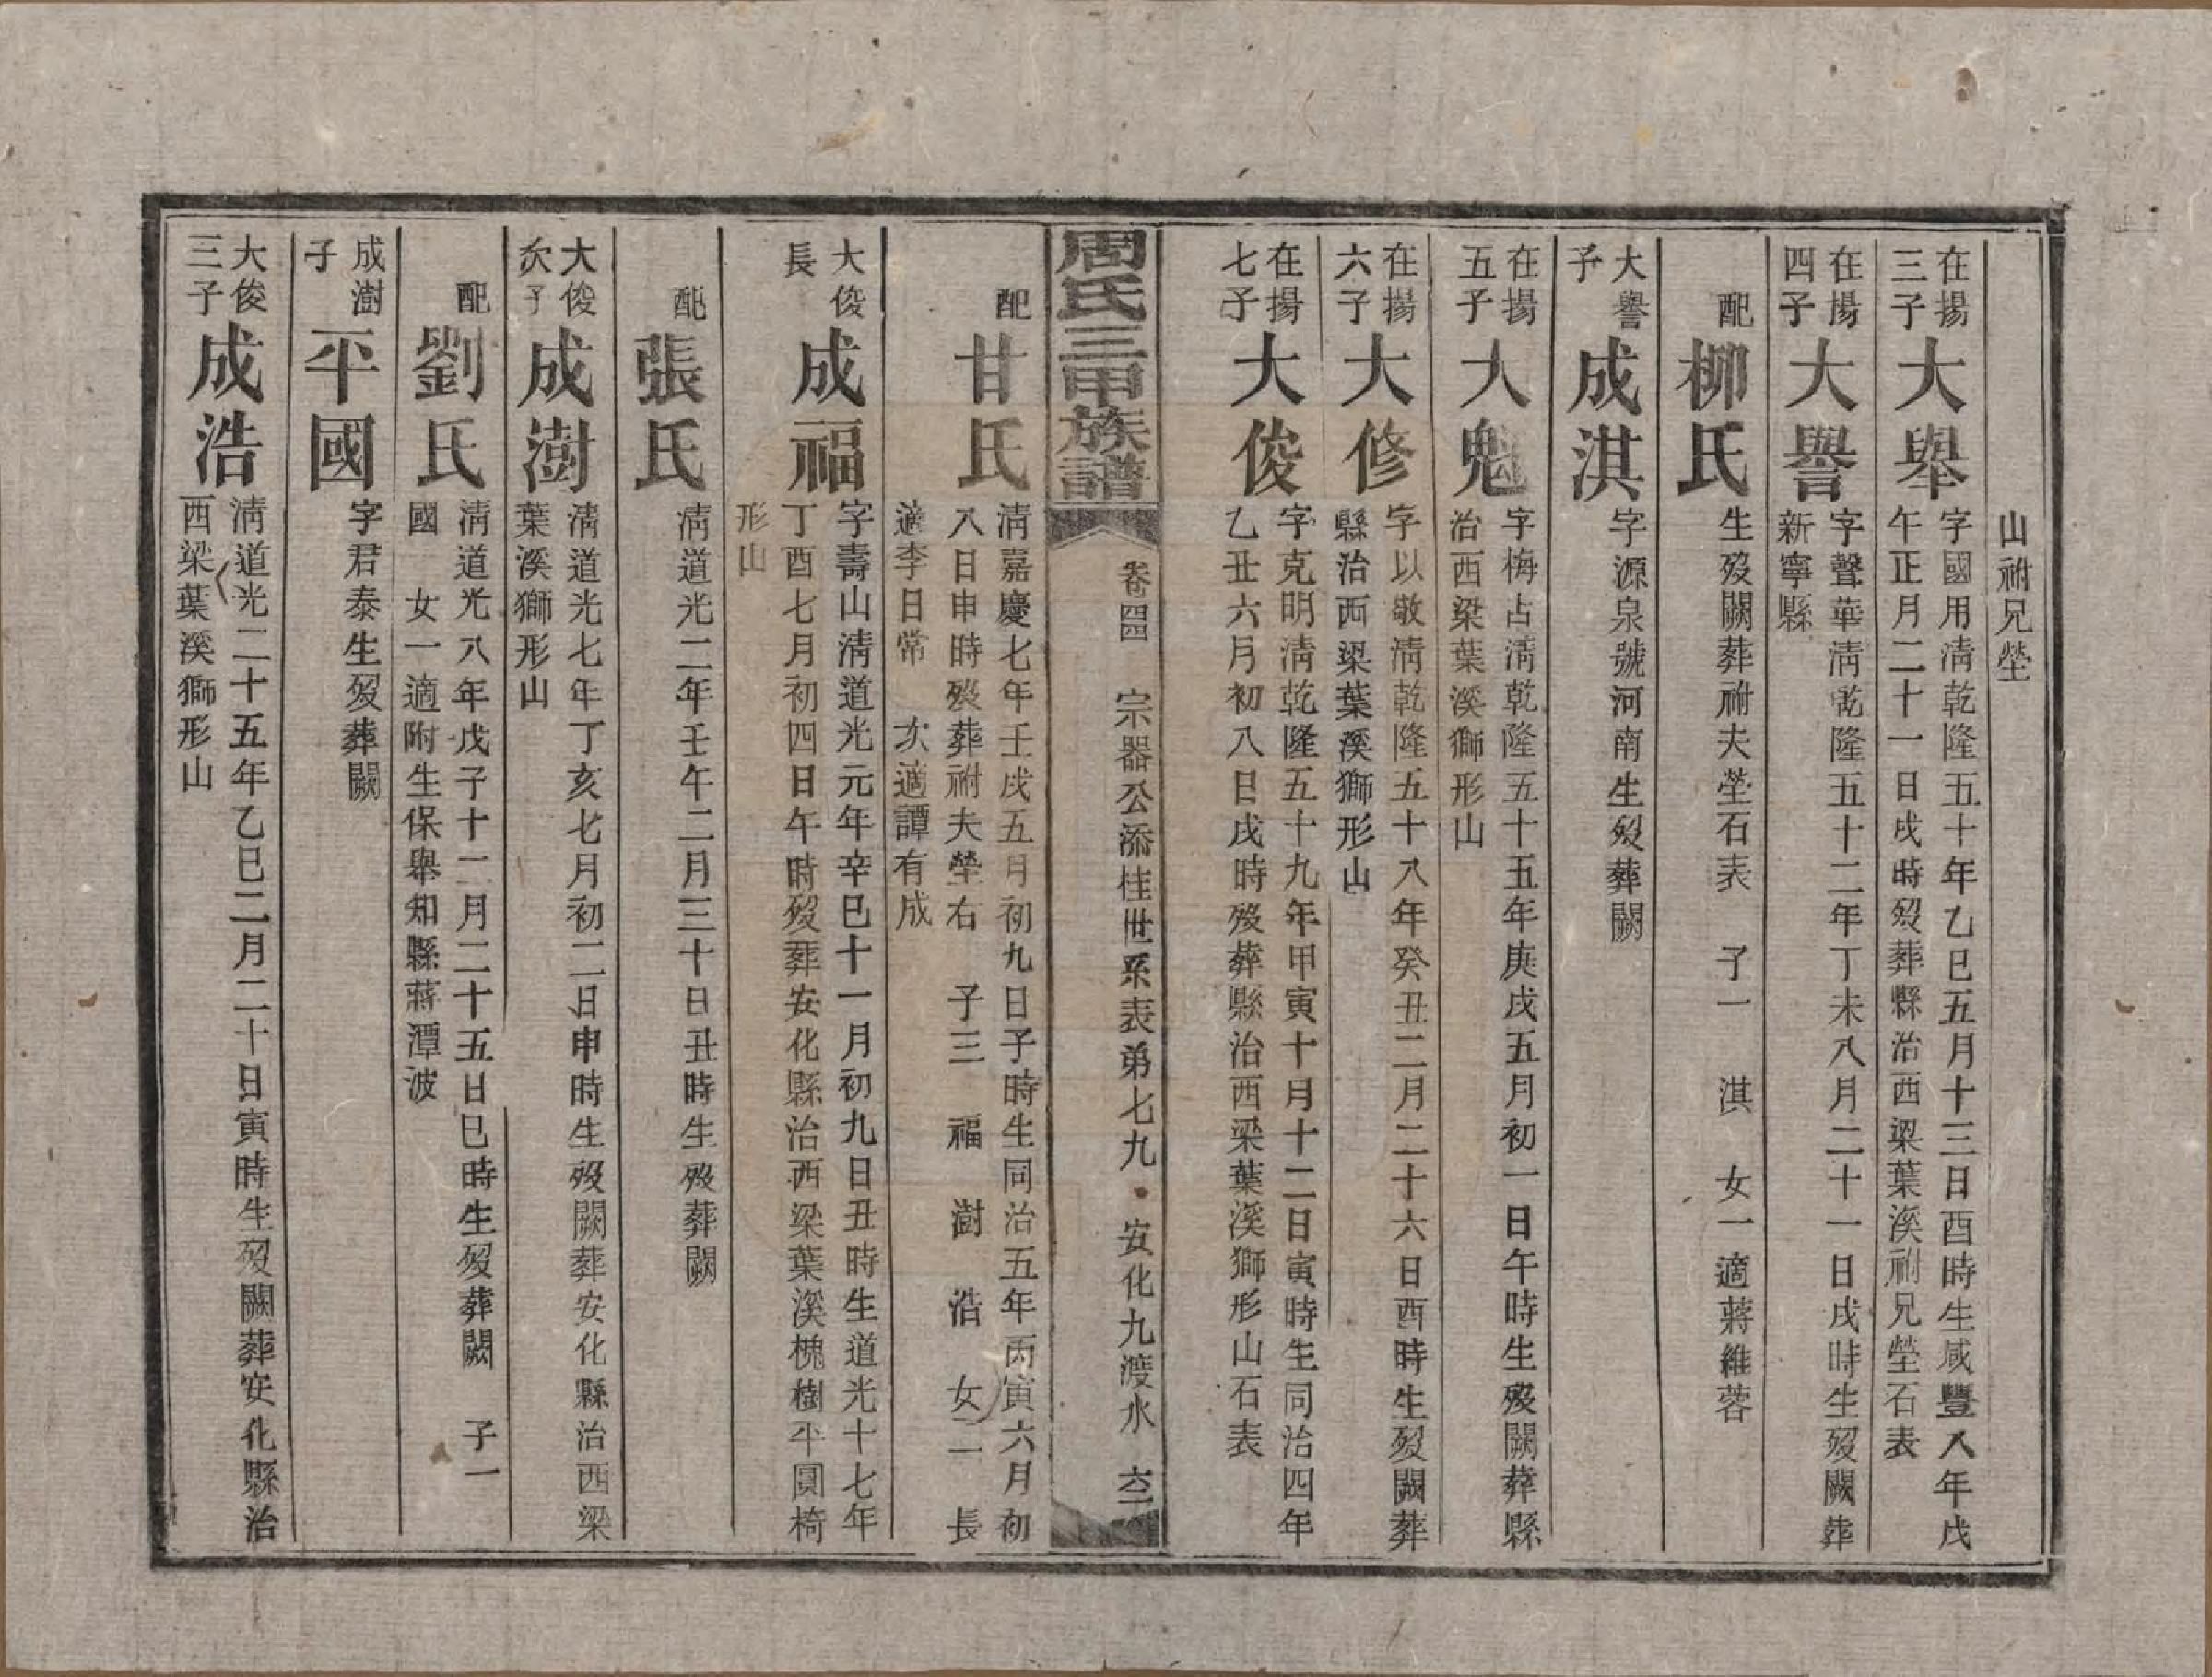 山祔兄塋
在揚三子
大舉
字國用淸乾隆五十年乙巳五月十三日酉時生咸豐八年戊
午正月二十一日戌時歿葬縣治西梁葉溪祔兄塋石表
在揚四子
大譽
字聲華淸乾隆五十二年丁未八月二十一日戌時生歿闕葬
新寧縣
配
柳氏
生歿闕葬祔夫塋石表 子一 淇 女一適蔣維蓉
大譽子
成淇
字源泉號河南生歿葬闕
在揚五子
大魁
字梅占淸乾隆五十五年庚戌五月初一日午時生歿闕葬縣
治西梁葉溪獅形山
在揚六子
大修
字以敬淸乾隆五十八年癸丑二月二十六日酉時生歿闕葬
縣治西梁葉溪獅形山
在揚七子
大俊
字克明淸乾隆五十九年甲寅十月十二日寅時生同治四年
乙丑六月初八日戌時歿葬縣治西梁葉溪獅形山石表
周氏三甲族譜
卷四四 宗器公添桂世系表弟七九 安化九渡水
配
甘氏
淸嘉慶七年壬戌五月初九日子時生同治五年丙寅六月初
八日申時歿葬祔夫塋右 子三 福 澍 浩 女二 長
適李日常 次適譚有成
大俊長
成福
字壽山淸道光元年辛巳十一月初九日丑時生道光十七年
丁酉七月初四日午時歿葬安化縣治西梁葉溪槐樹平圓椅
形山
配
張氏
淸道光二年壬午二月三十日丑時生歿葬闕
大俊次子
成澍
淸道光七年丁亥七月初二日申時生歿闕葬安化縣治西梁
葉溪獅形山
配
劉氏
淸道光八年戊子十二月二十五日巳時生歿葬闕 子一
國 女一適附生保舉知縣蔣潭波
成澍子
平國
字君泰生歿葬闕
大俊三子
成浩
淸道光二十五年乙巳二月二十日寅時生歿闕葬安化縣治
西梁葉溪獅形山